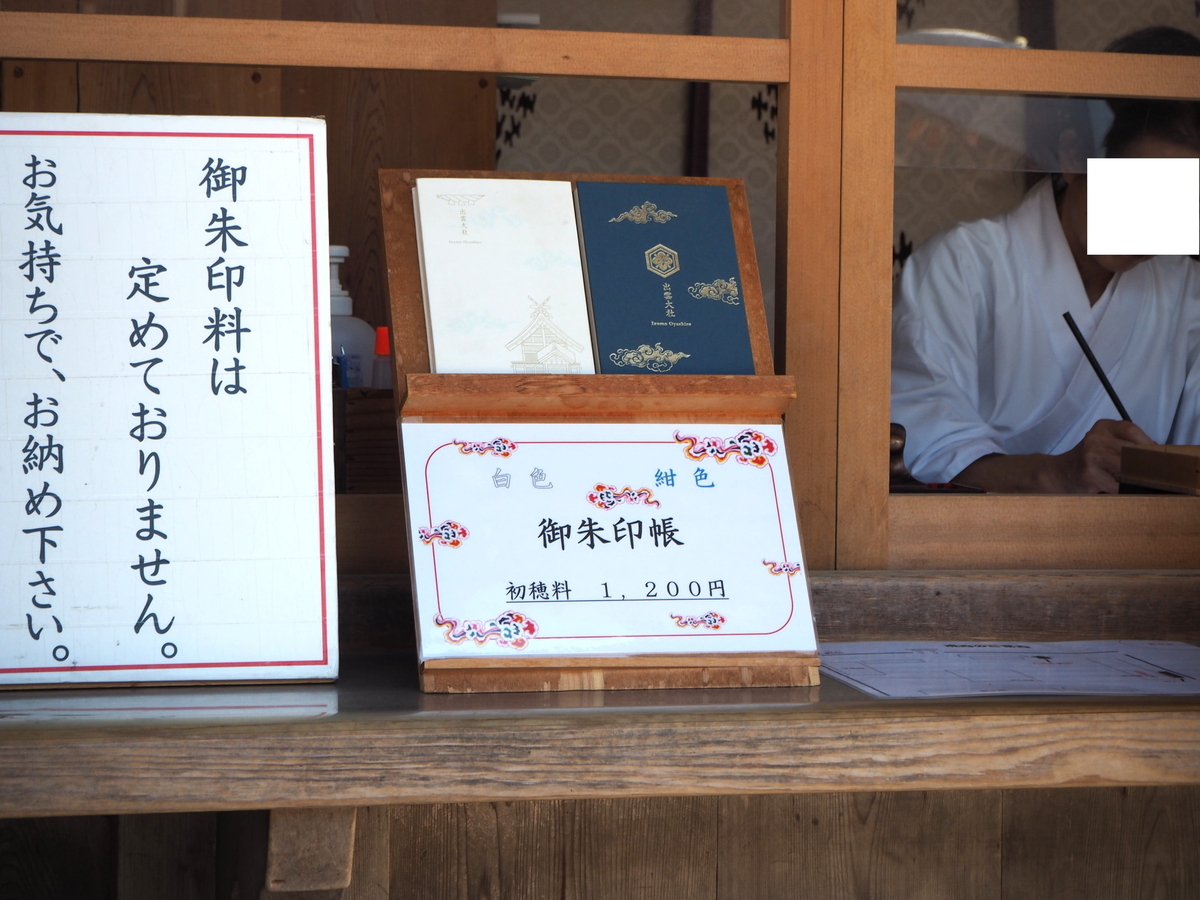 御朱印料は
定めておりません。
お気持ちで、お納め下さい。
出雲大社
Izumo Oyashiro
出雲大社
Izumo Oyashiro
白色 紺色
御朱印帳
初穂料 1,200円